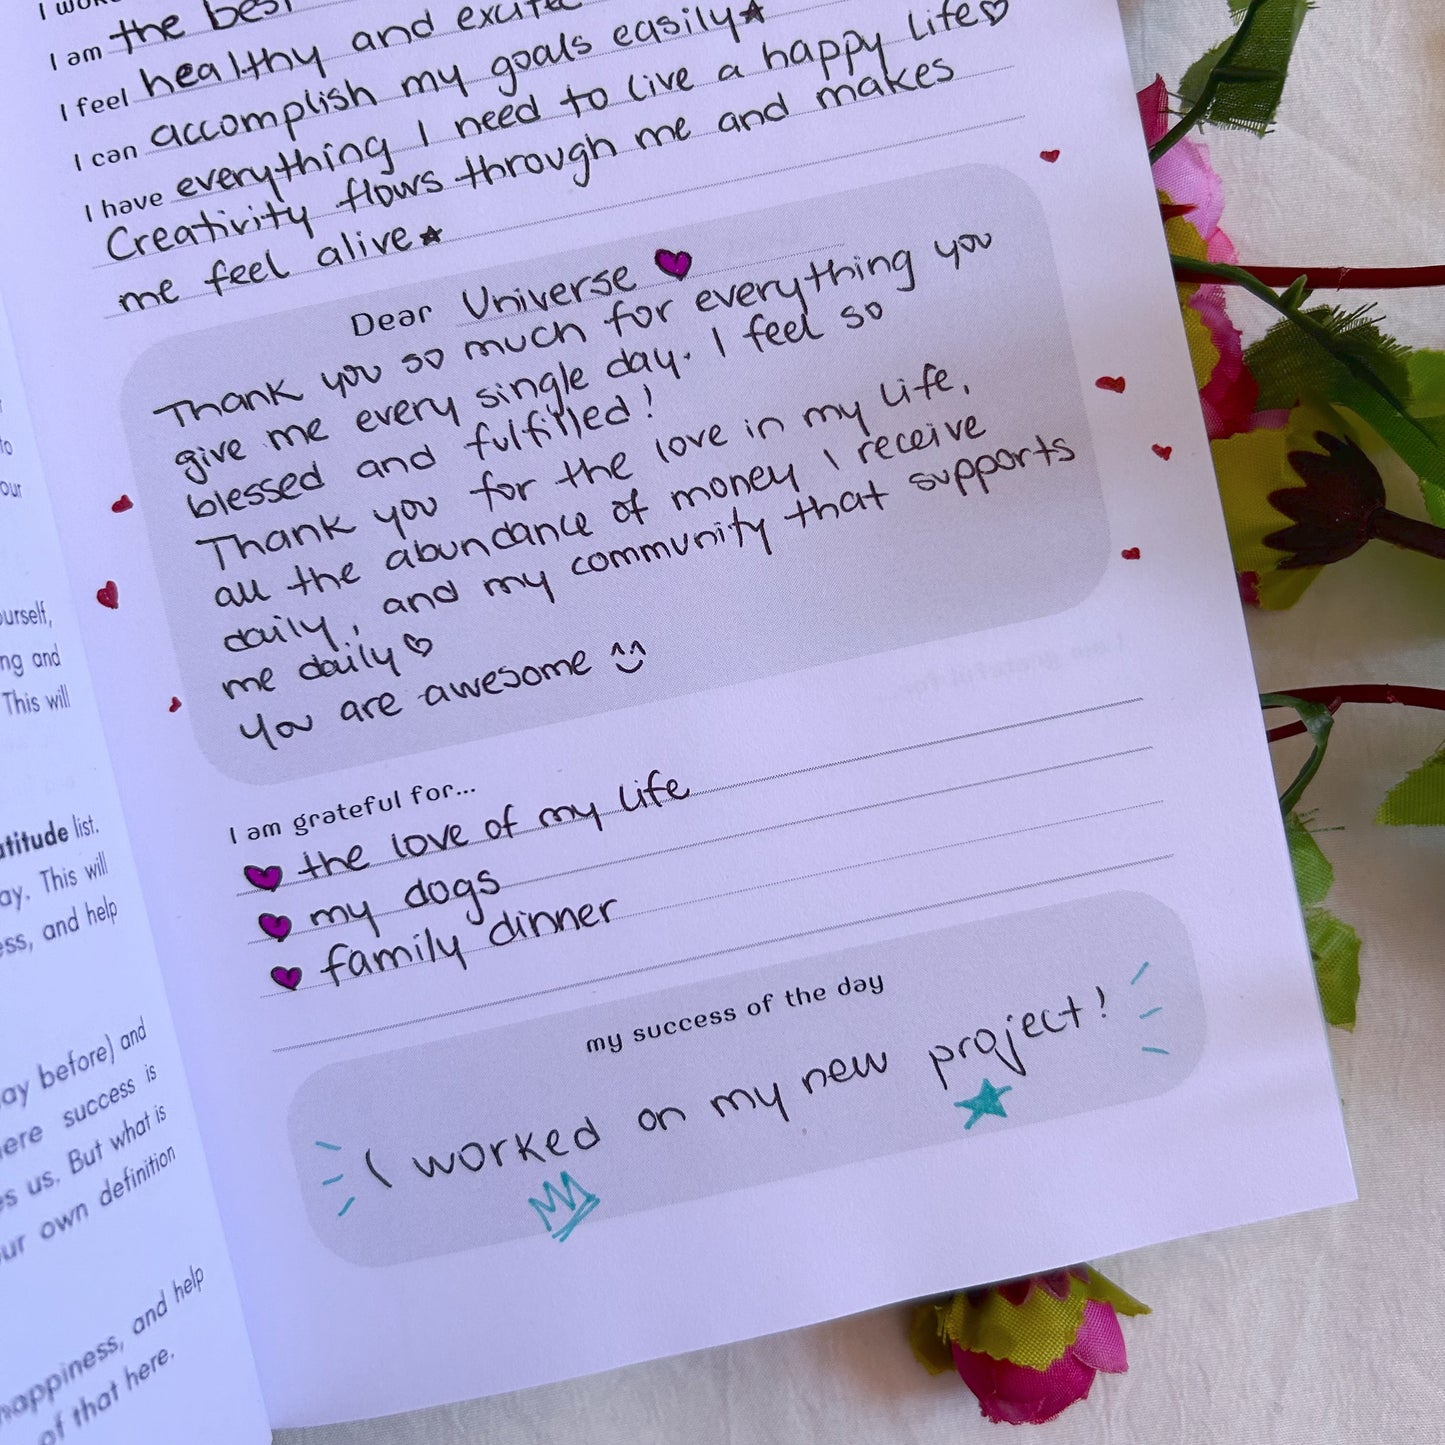 I am the best
I feel healthy and excited
I can accomplish my goals easily
I have everything I need to live a happy life
Creativity flows through me and makes
me feel alive
Dear Universe
Thank you so much for everything you
give me every single day. I feel so
blessed and fulfilled!
Thank you for the love in my life,
all the abundance of money I receive
daily, and my community that supports
me daily
You are awesome
I am grateful for...
the love of my life
my dogs
family dinner
my success of the day
I worked on my new project!
to
our
ourself,
ng and
This will
atitude list.
ay. This will
ess, and help
ay before) and
here success is
es us. But what is
ur own definition
happiness, and help
of that here.